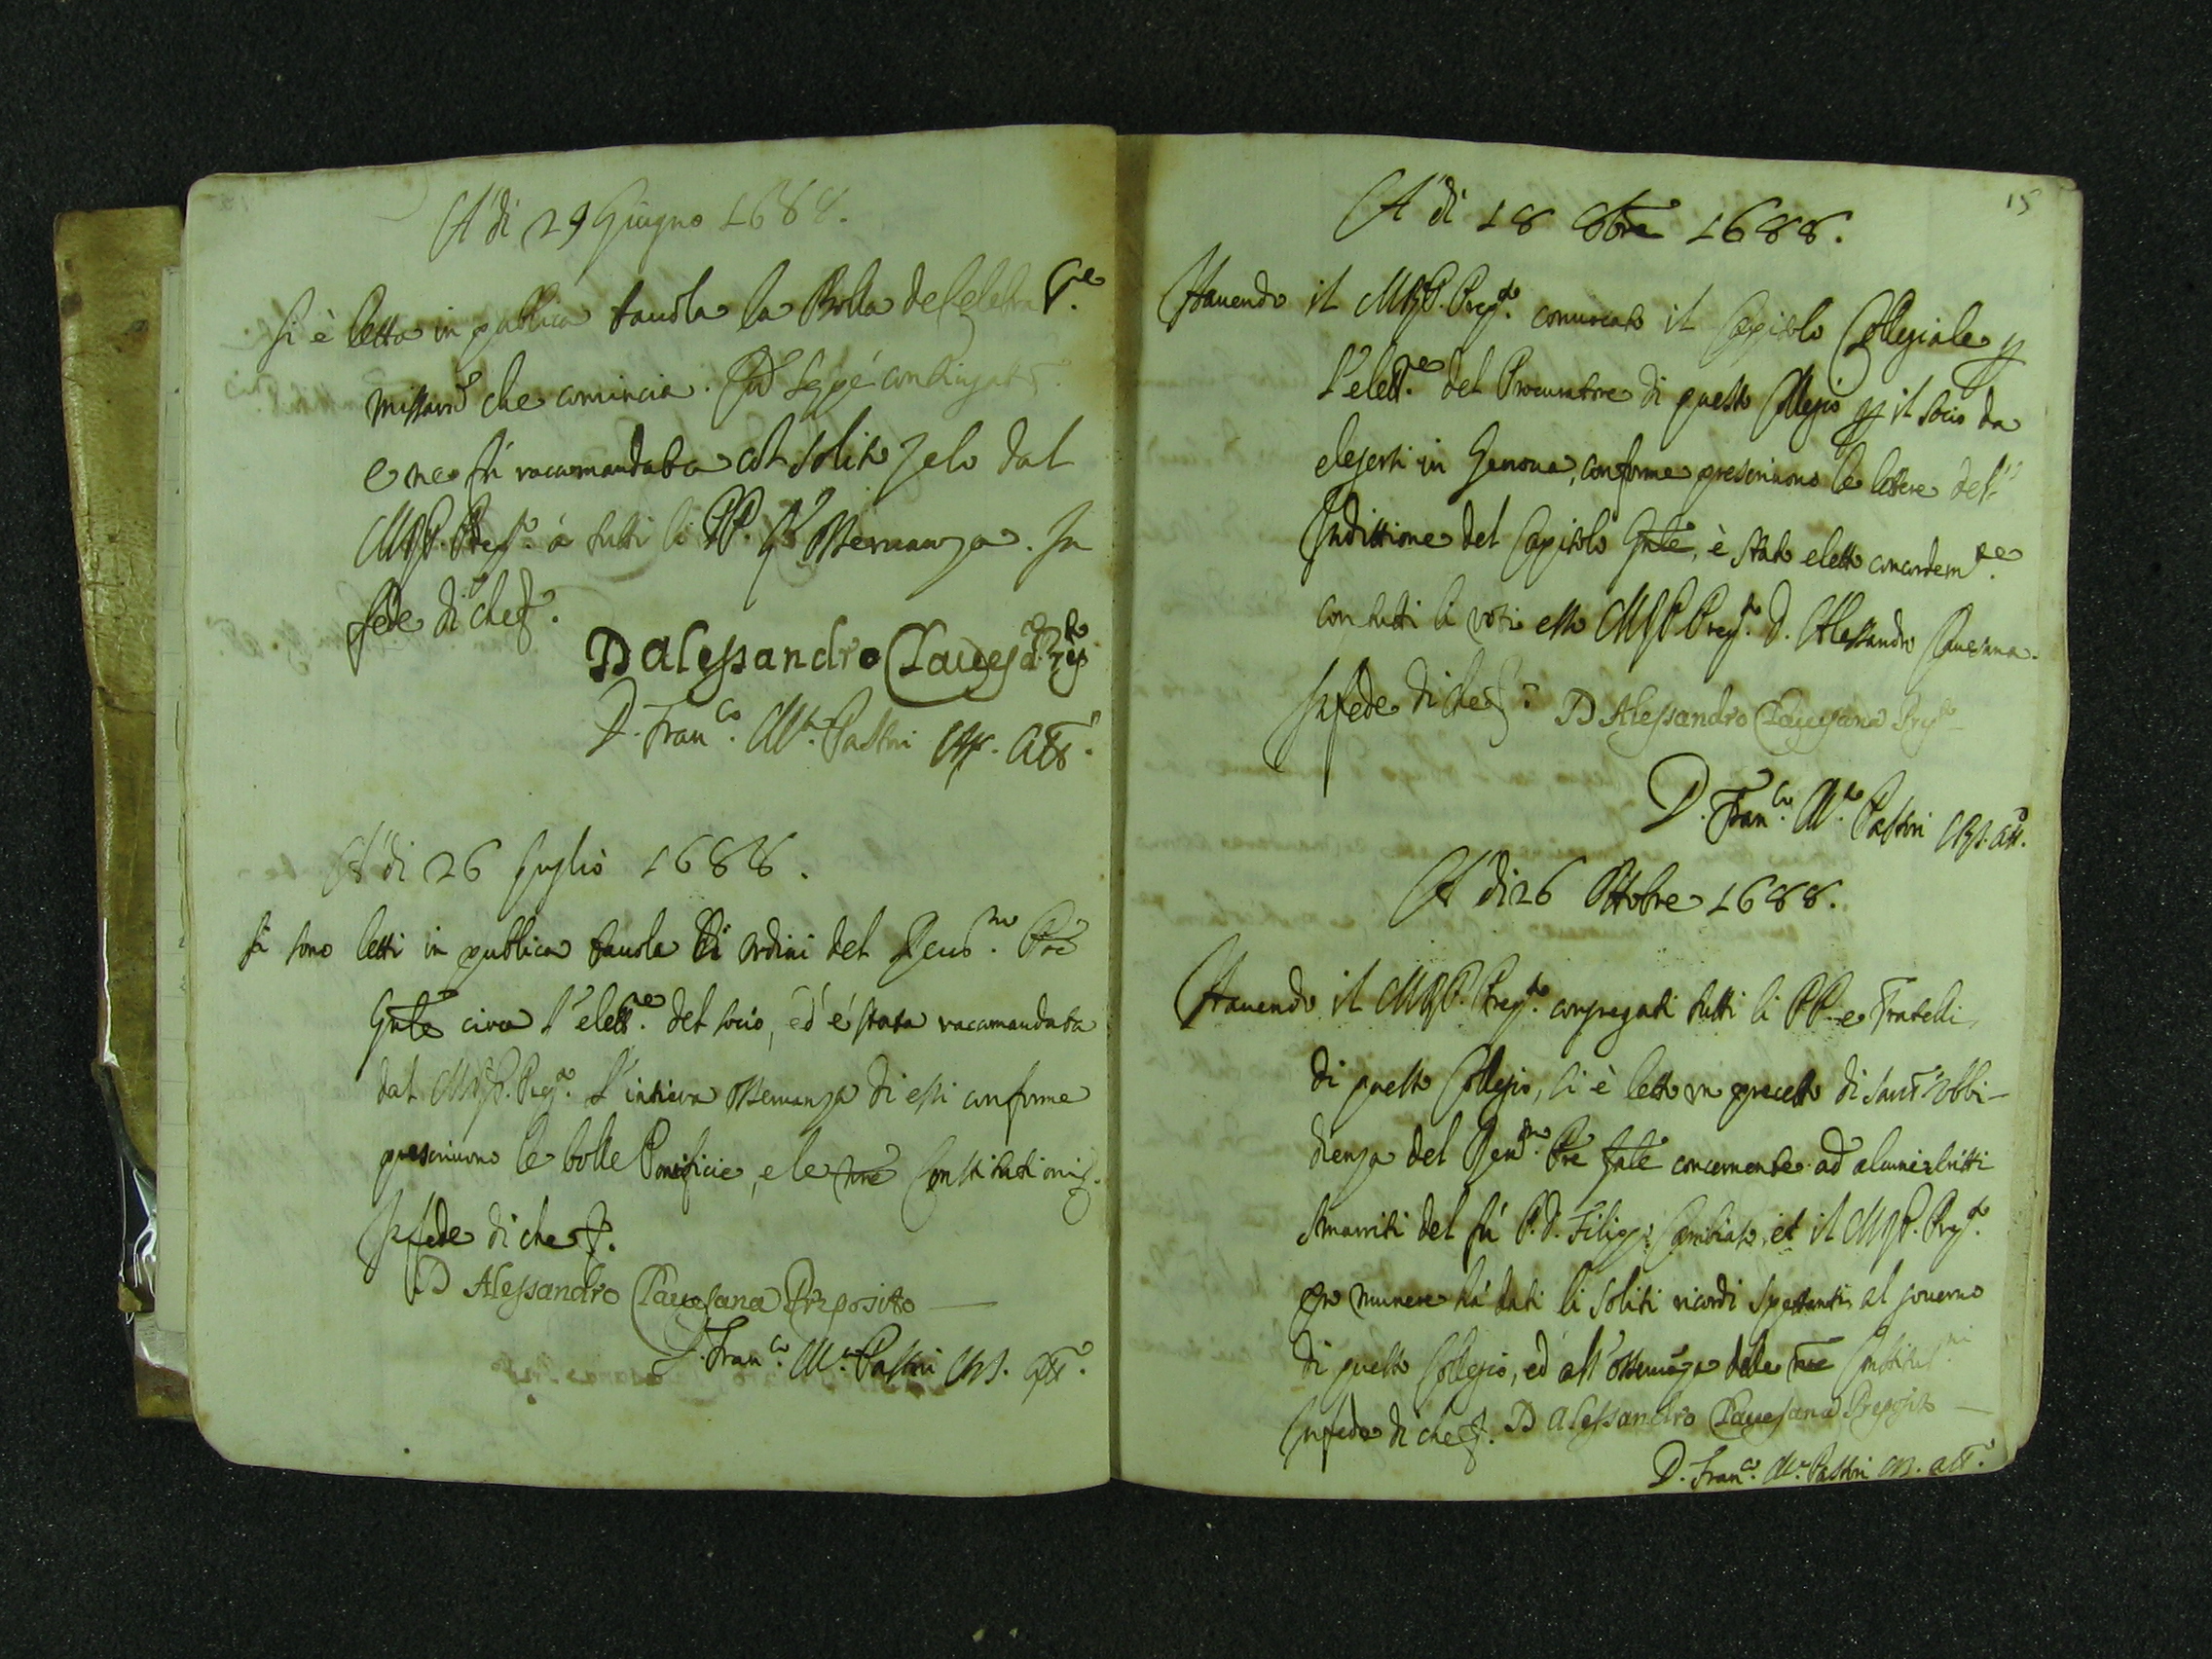 A' di 29 Giugno 1688.
Si è letta in publica tauola la Bolla de Celebra.ne
Missarū che comincia. Cū sępè contingat
e ne fù racomandata col solito zelo dal
M.R.P. Prep.to à tutti li PP. l'osseruanza. In
fede di che
D Alessandro Pauesana Prep.to
D. Fran.co M.a Pastori Att.
A' di 26 Luglio 1688.
Si sono letti in publica tauola li ordini del Reud.mo Prē
Gnle circa l'elett.ne del socio, ed' è stata racomandata
dal M.R.P. Prep.to l'intiera osseruanza di essi conforme
prescriuono le bolle Pontificie, e le nre Constitutioni
In fede di che
D Alessandro Pauesana Preposito
D. Fran.co M.a Pastori Att.
15
A' di 18 8bre 1688.
Hauendo il M.R.P. Prep.to conuocato il Capitolo Collegiale p
l'elett.ne del Procuratore di questo Collegio p il socio da
elegersi in Genoua, conforme prescriuono le lettere del'
Indittione del Capitolo Gnle, è stato eletto concordem.te
con tutti li voti esso M.R.P. Prep.to D. Alessandro Pauesana.
In fede di che
D Alessandro Pauesana Prep.to
D. Fran.co M.a Pastori Att.
A' di 26 Ottobre 1688.
Hauendo il M.R.P. Prep.to congregati tutti li PP. e Fratelli
di questo Collegio, si è letto vn precetto di sant' obbi-
dienza del Reud.mo Prē Gnle concernente ad alcuni scritti
smarriti del fù P.D. Filippo et il M.R.P. Prep.to
pro munere hà dati li soliti ricordi spettanti al gouerno
di questo Collegio, ed all' osseruāza delle nre Constitut.ni
In fede di che D Alessandro Pauesana Preposito
D. Fran.co M.a Pastori Att.